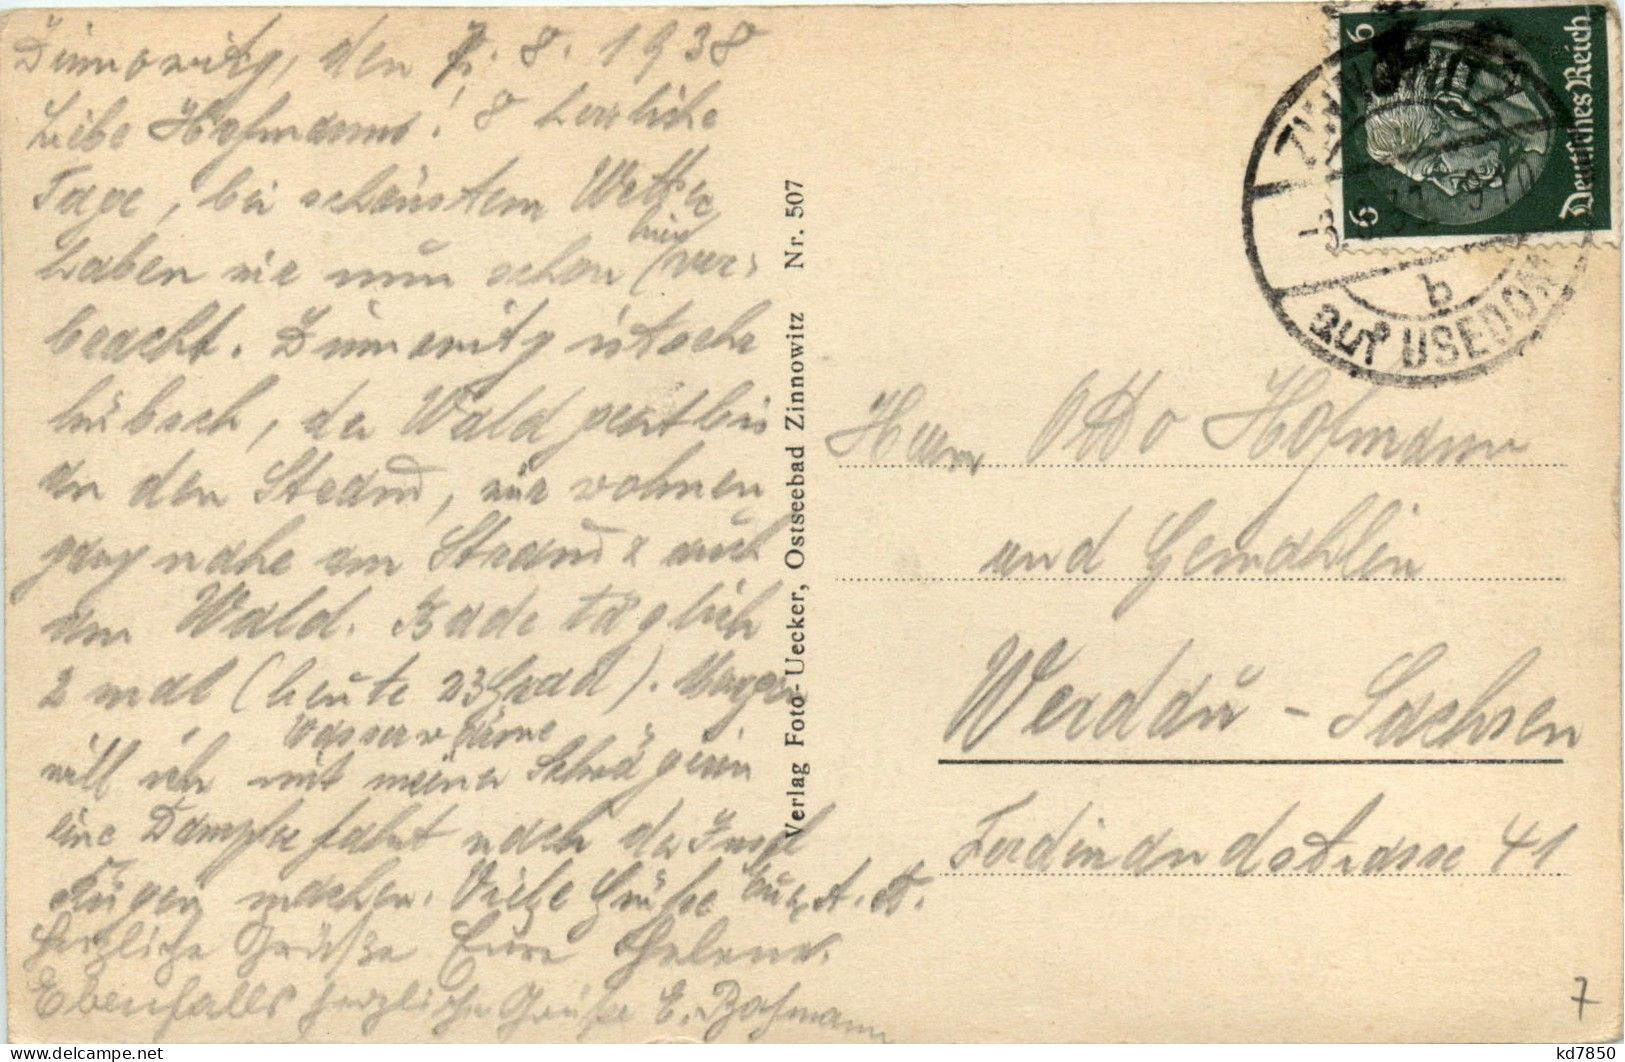 Zinnowitz, den 7. 8. 1938
Liebe Hofmanns! 8 herrliche
Tage, bei schönstem Wetter
haben wir nun schon (hier) ver-
bracht. Zinnowitz ist sehr
hübsch, der Wald geht bis
an den Strand, wir wohnen
ganz nahe am Strand & auch
am Wald. Bade täglich
2 mal (heute 23 Grad). Morgen
Wasserwärme
will ich mit meiner Schwägerin
eine Dampferfahrt nach der Insel
Rügen machen. Viele Grüße Eure A. D.
Herzliche Grüße Eure Helene.
Ebenfalls herzliche Grüße E. Hofmann
Verlag Foto-Uecker, Ostseebad Zinnowitz Nr. 507
Deutsches Reich
6 6
ZINNOWITZ
b
auf USEDOM
Herrn Otto Hofmann
und Gemahlin
Werdau - Sachsen
Ferdinandstrasse 41
7
kd7850